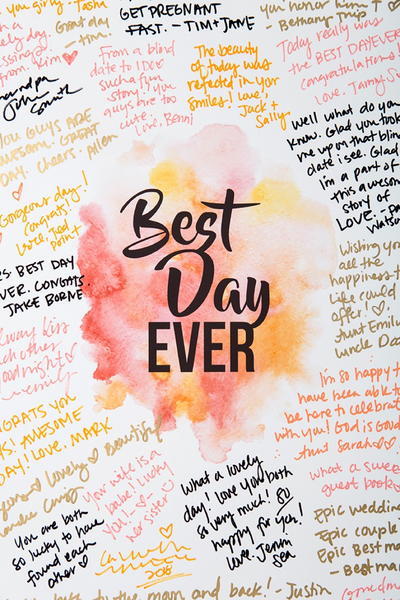 GET PREGNANT
FAST. - TIM + JANE
Great day
Tim.
you honor him ↑
Bethany Trip
From a blind
date to I DO
such a fun
story! You
guys are too
cute.
Love, Benni
The beauty
of today was
reflected in yor
smiles! Love,
Jack +
Sally
Today really was
the BEST DAY EVER
congratulations!
love. Tammy
grandpa
John
Smith
YOU GUYS ARE
AWESOME. GREAT
DAY. Cheers. Allen
Well what do you
know. Glad you took
me up on that blind
date i see. Glad
i'm a part of
this awesome
story of
LOVE.
Gorgeous day!
Congrats!
Love. Ted
point
Best
Day
EVER
BEST DAY
EVER. CONGATS.
JAKE BORNE
Wishing you
all the
happiness
Life could
offer!
Aunt Emily
Uncle
Always kiss
each other
goodnight
Emily
I'm so happy
have been able to
be here to celebrate
with you! God is Good
Aunt Sarah
CONGRATS YOU
AWESOME
DAY! LOVE. MARK
Lovely Beautiful
Your wife is a
babe! Lucky
You!
her sister
what a sweet
guest book
What a lovely
day! love you both
so very much! so
happy for you!
love. Jenni
You are both
so lucky to have
found each
other
2018
Epic wedding
Epic couple
Epic Best man
- Best man
to the moon and back! - Justin